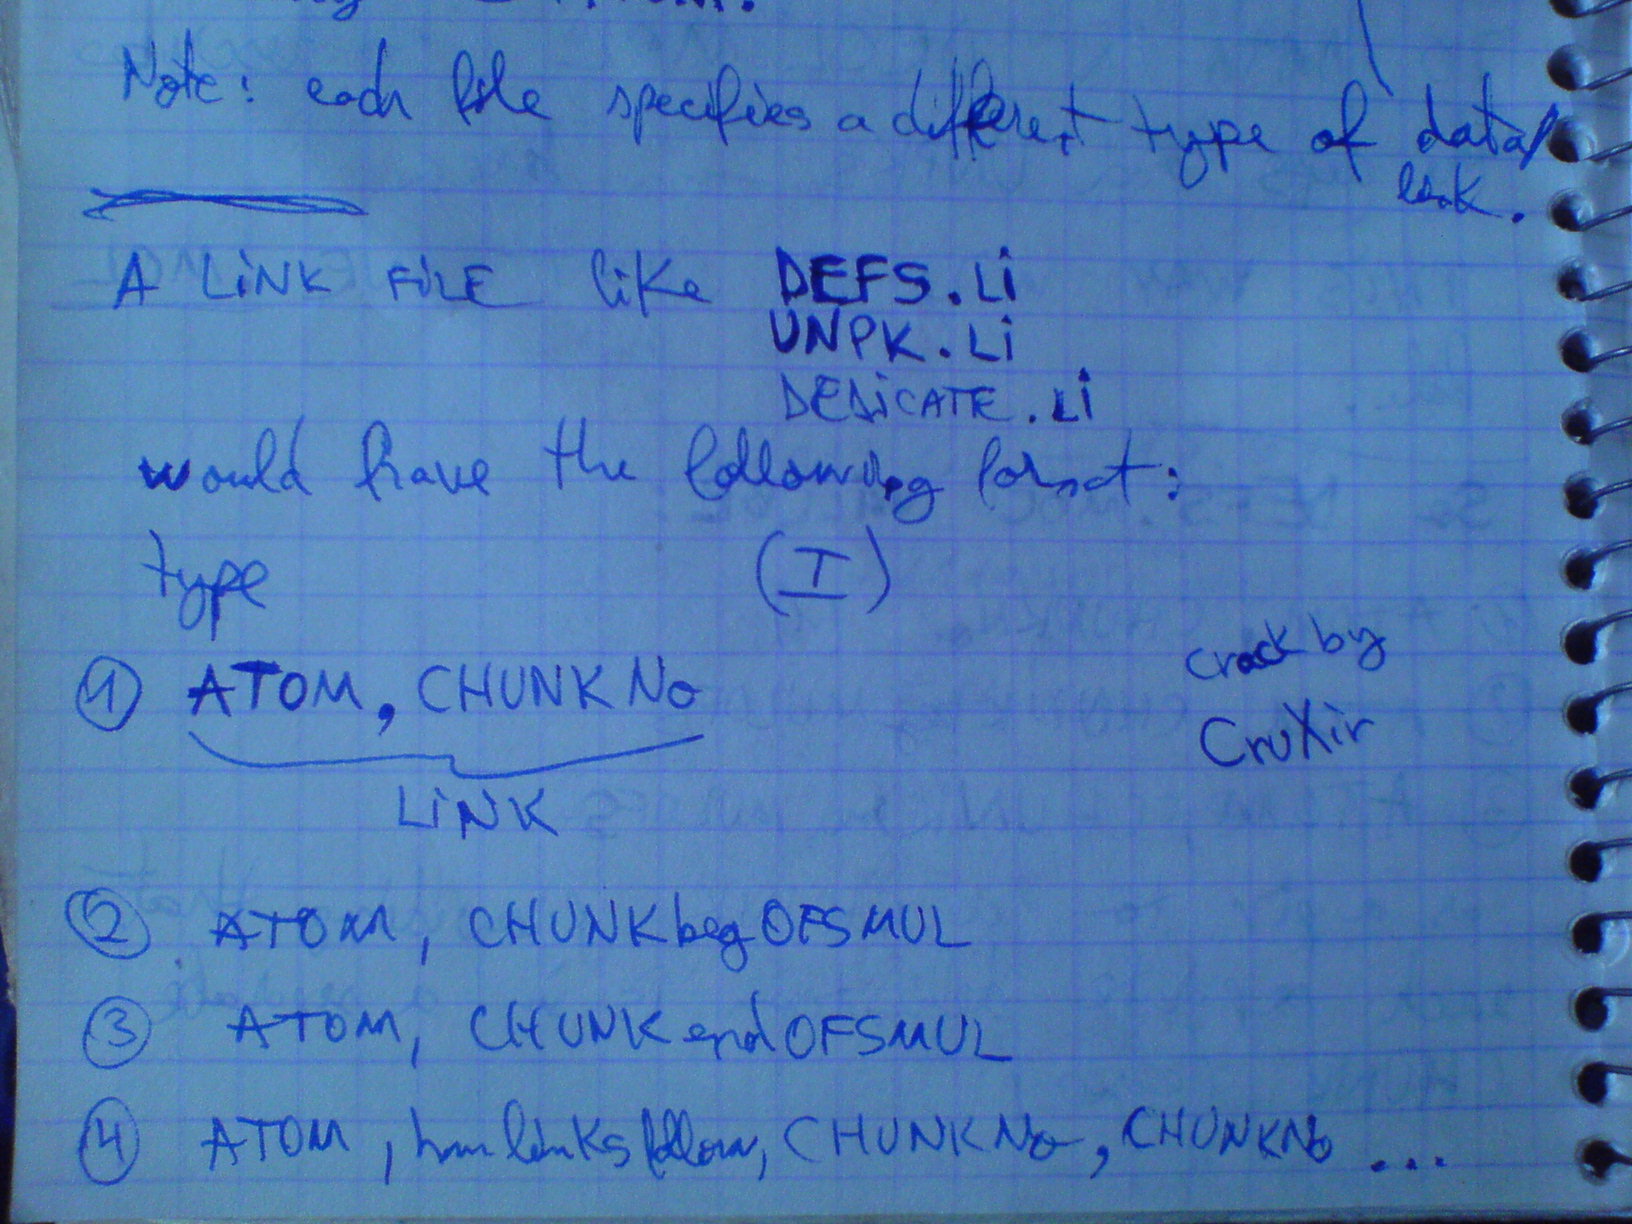 Note: each file specifies a different type of data/
link.
A LiNK FiLE like DEFS.Li
UNPK.Li
DEDiCATE.Li
would have the following format:
type (I)
1 ATOM, CHUNKNo
LiNK
crack by
CruXir
2 ATOM, CHUNKbegOFSMUL
3 ATOM, CHUNKendOFSMUL
4 ATOM, links follow, CHUNKNo, CHUNKNo ...